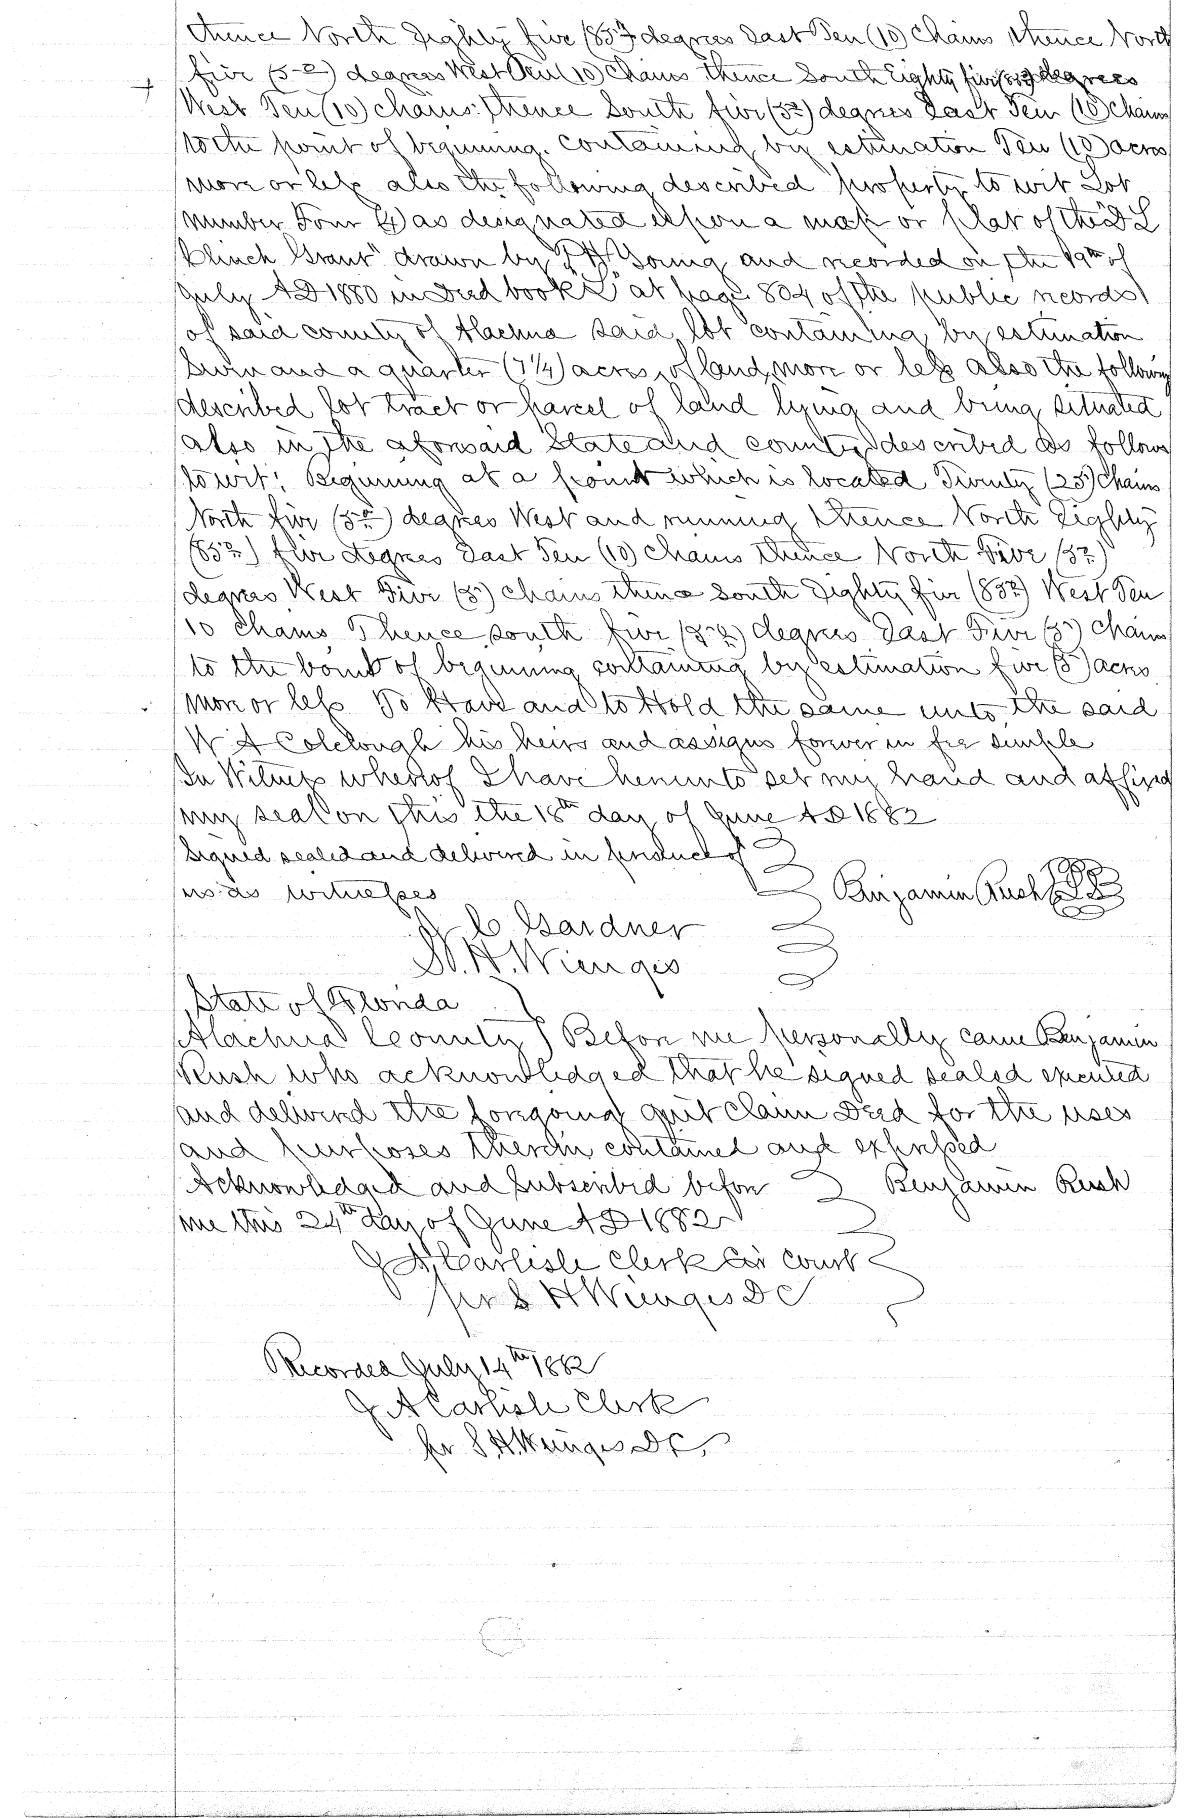 thence North Eighty five (85°) degrees East Ten (10) chains thence North
five (5°) degrees West Ten (10) chains thence South Eighty five (85°) degrees
West Ten (10) chains: thence South five (5°) degrees East Ten (10) chains
to the point of beginning. containing by estimation Ten (10) acres
more or less also the following described property to wit Lot
number Four (4) as designated upon a map or plat of the "D L
Clinch Grant" drawn by J H Young and recorded on the 19th of
July A D 1880 in Deed book "L" at page 804 of the public records
of said county of Alachua said lot containing by estimation
Seven and a quarter (7 1/4) acres of land, more or less also the following
described lot tract or parcel of land lying and being situated
also in the aforesaid State and county described as follows
to wit: Beginning at a point which is located Twenty (25) chains
North five (5°) degrees West and running thence North Eighty
(85°) five degrees East Ten (10) chains thence North Five (5°)
degrees West Five (5) chains thence South Eighty five (85°) West Ten
10 chains Thence south five (5°) degrees East Five (5) chains
to the point of beginning containing by estimation five (5) acres
more or less To Have and to Hold the same unto the said
W A Colclough his heirs and assigns forever in fee simple
In Witness whereof I have hereunto set my hand and affixed
my seal on this the 18th day of June A D 1882
Signed sealed and delivered in presence of
us as witnesses Benjamin Rush
J C Gardner
S. H. Wienges
State of Florida
Alachua County } Before me personally came Benjamin
Rush who acknowledged that he signed sealed executed
and delivered the foregoing quit claim Deed for the uses
and purposes therein contained and expressed
Acknowledged and Subscribed before Benjamin Rush
me this 24th day of June A D 1882
J A Carlisle Clerk Cir Court
per S H Wienges D C
Recorded July 14th 1882
J A Carlisle Clerk
per S. H. Wienges D C.